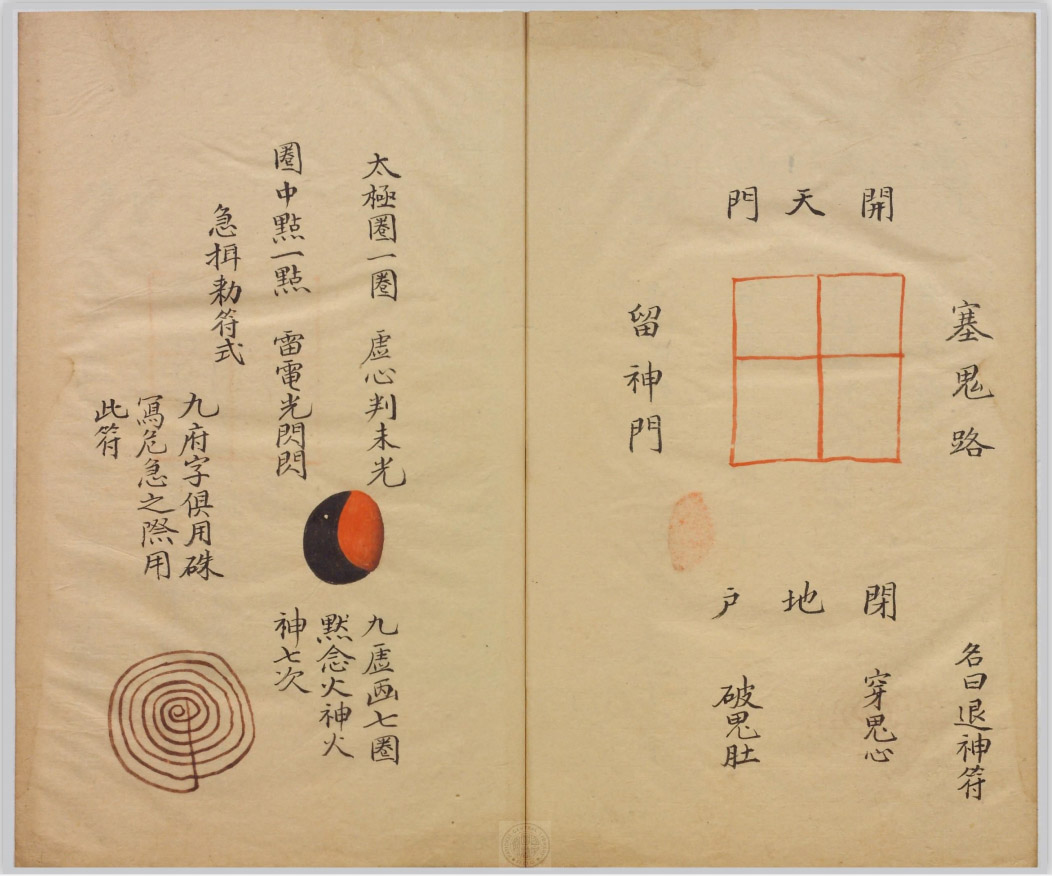 開天門
塞鬼路
留神門
閉地戶
名曰退神符
穿鬼心
破鬼肚
太極圈一圈 虛心判未光
圈中點一點 雷電光閃閃
九虛画七圈
默念火神火
神七次
急挕勅符式
九府字俱用硃
寫危急之際用
此符